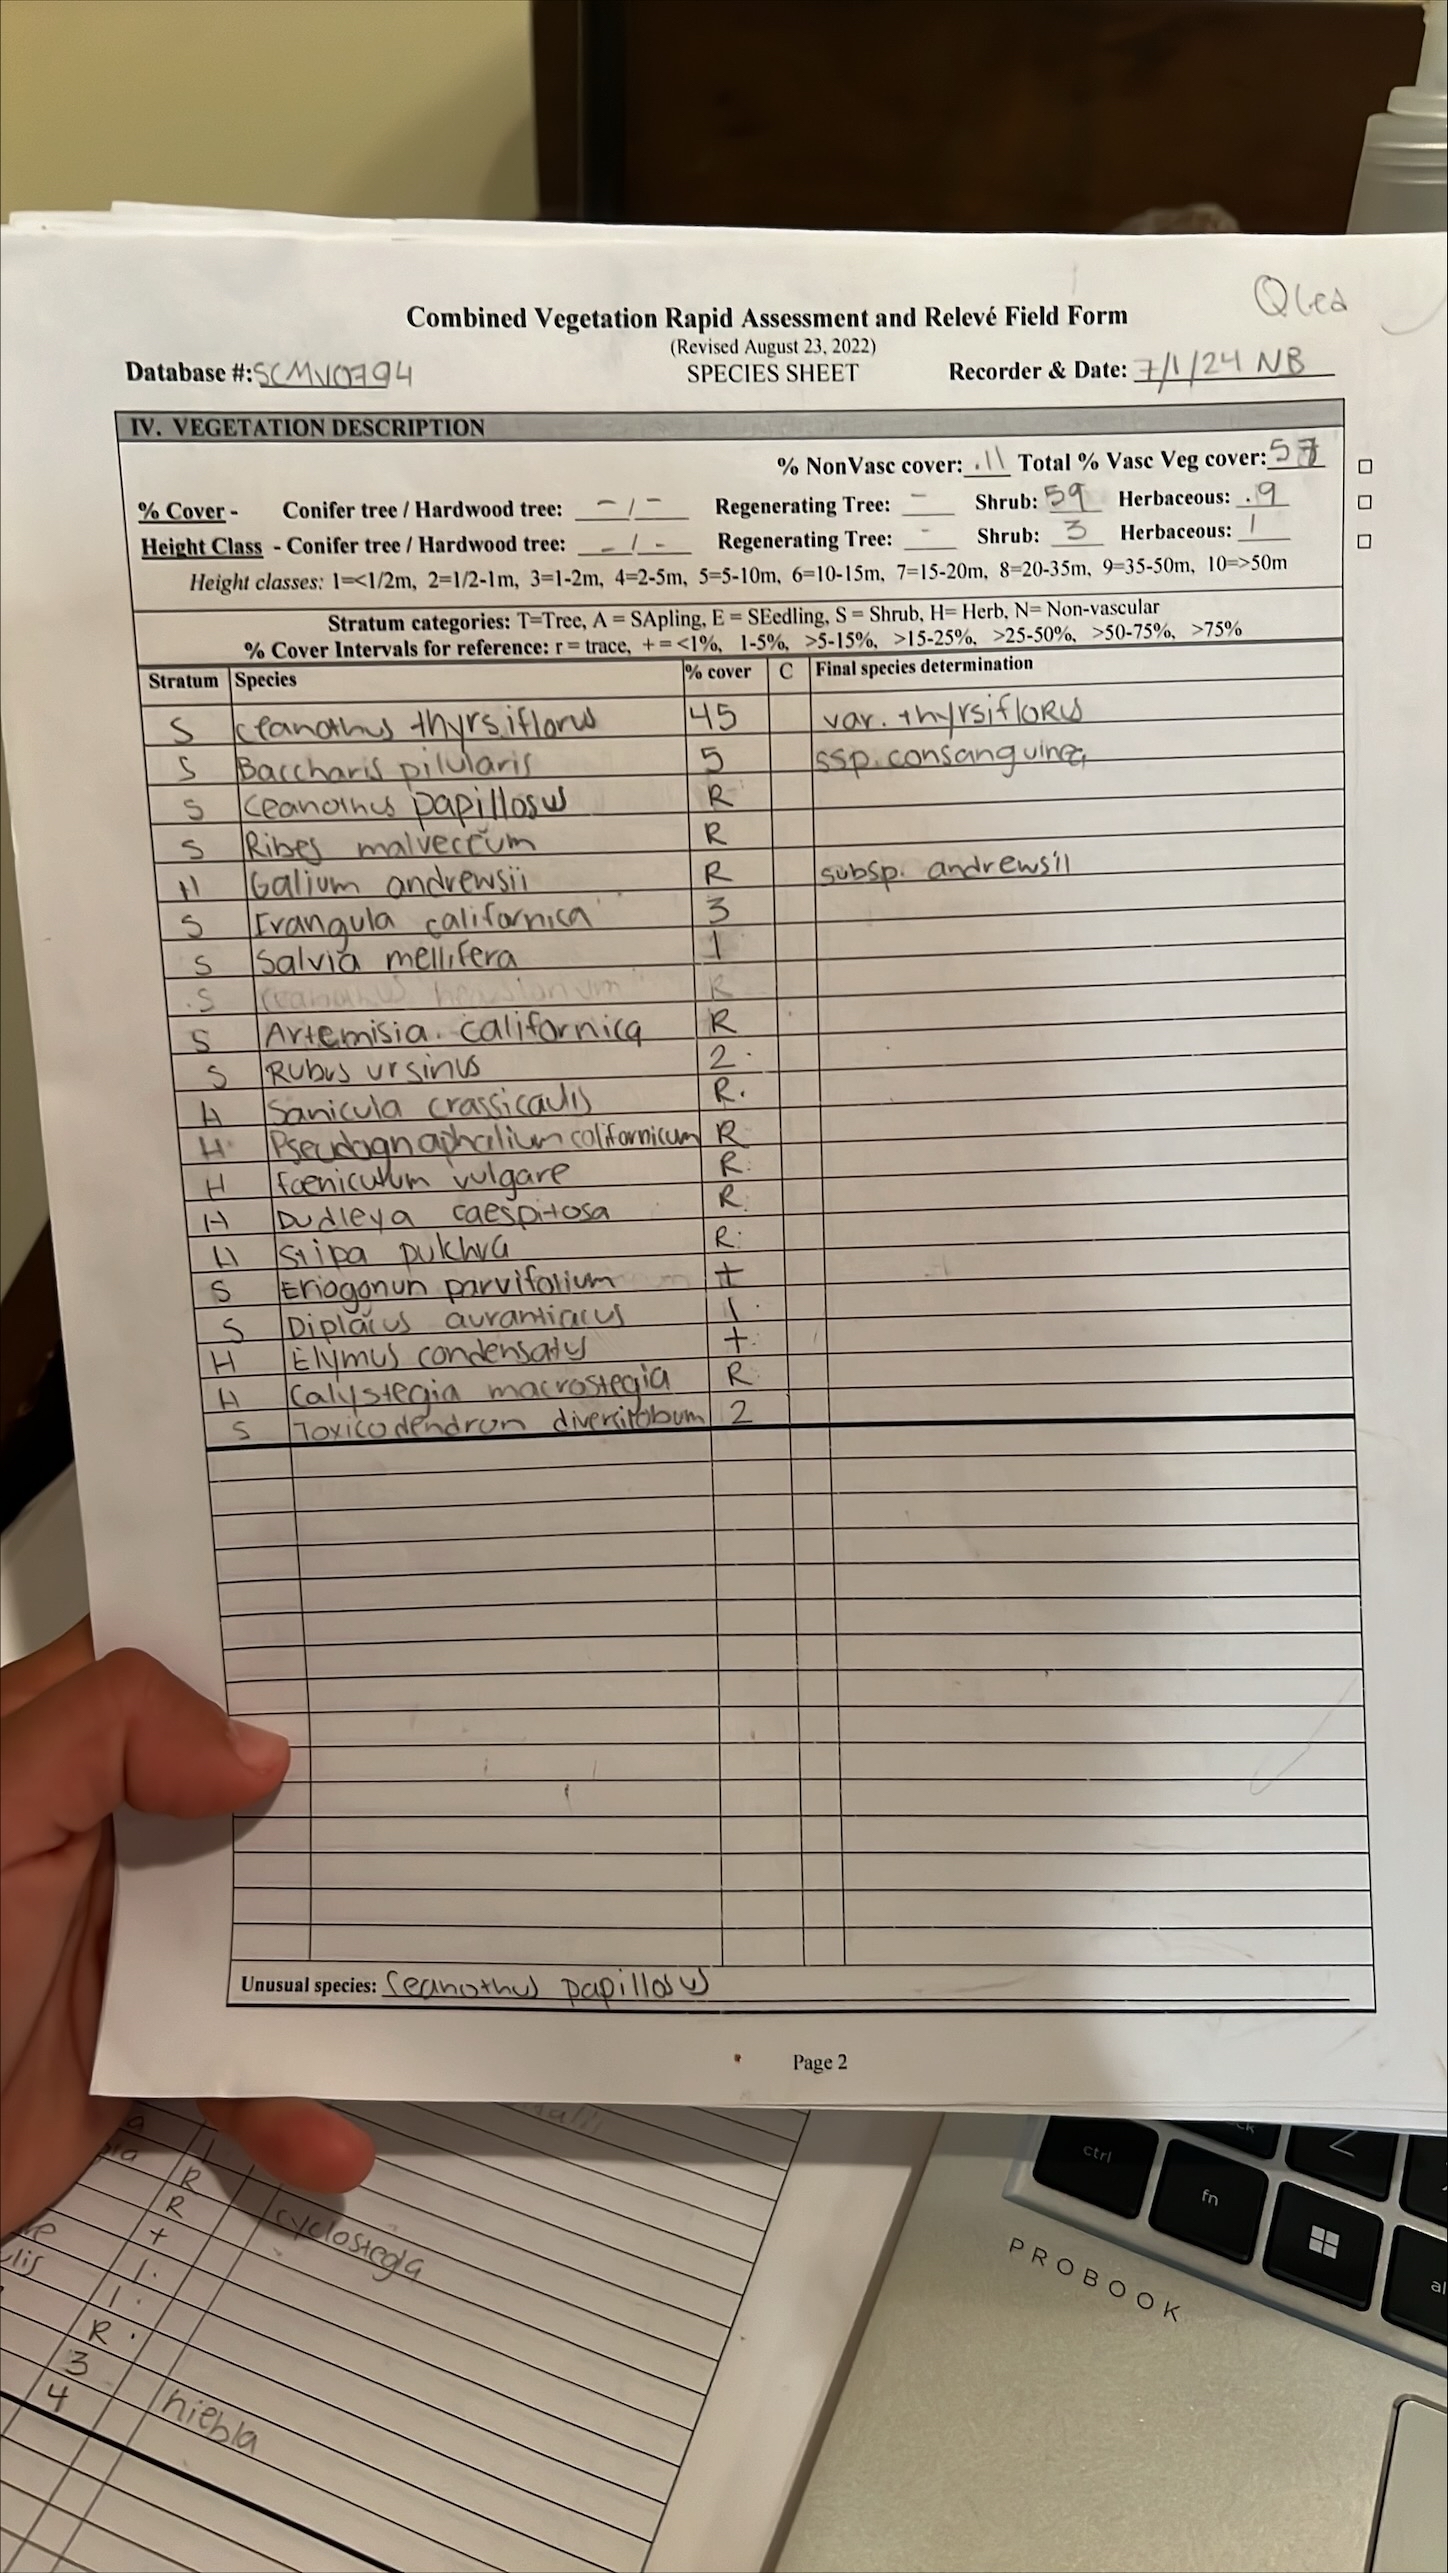 QCed
Combined Vegetation Rapid Assessment and Relevé Field Form
(Revised August 23, 2022)
Database #: SCMV0794 SPECIES SHEET Recorder & Date: 7/1/24 NB
IV. VEGETATION DESCRIPTION
% NonVasc cover: .11 Total % Vasc Veg cover: 57
% Cover - Conifer tree / Hardwood tree: - / - Regenerating Tree: - Shrub: 59 Herbaceous: .9
Height Class - Conifer tree / Hardwood tree: - / - Regenerating Tree: - Shrub: 3 Herbaceous: 1
Height classes: 1=<1/2m, 2=1/2-1m, 3=1-2m, 4=2-5m, 5=5-10m, 6=10-15m, 7=15-20m, 8=20-35m, 9=35-50m, 10=>50m
Stratum categories: T=Tree, A = SApling, E = SEedling, S = Shrub, H= Herb, N= Non-vascular
% Cover Intervals for reference: r = trace, + = <1%, 1-5%, >5-15%, >15-25%, >25-50%, >50-75%, >75%
Stratum Species % cover C Final species determination
S Ceanothus thyrsiflorus 45 var. thyrsiflorus
S Baccharis pilularis 5 ssp. consanguinea
S Ceanothus papillosus R
S Ribes malvaceum R
H Galium andrewsii R subsp. andrewsii
S Frangula californica 3
S Salvia mellifera 1
S Ceanothus R
S Artemisia californica R
S Rubus ursinus 2
H Sanicula crassicaulis R
H Pseudognaphalium californicum R
H Foeniculum vulgare R
H Dudleya caespitosa R
H Stipa pulchra R
S Eriogonun parvifolium +
S Diplacus aurantiacus 1
H Elymus condensatus +
H Calystegia macrostegia R
S Toxicodendron diversilobum 2
Unusual species: Ceanothus papillosus
Page 2
R
R cyclostegia
+
1.
1.
R.
3
4 niebla
ctrl
fn
PROBOOK